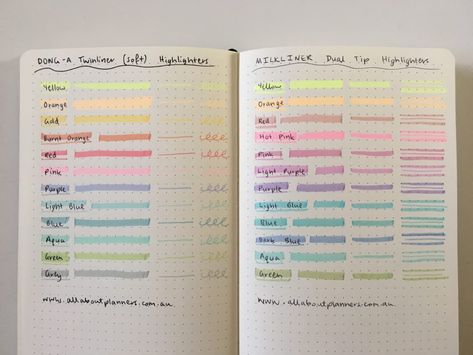 DONG-A Twinliner (soft) Highlighters
Yellow
Orange
Gold
Burnt Orange
Red
Pink
Purple
Light Blue
Blue
Aqua
Green
Grey
www.allaboutplanners.com.au
MILKLINER Dual Tip Highlighters
Yellow
Orange
Red
Hot Pink
Pink
Light Purple
Purple
Light Blue
Blue
Dark Blue
Aqua
Green
www.allaboutplanners.com.au